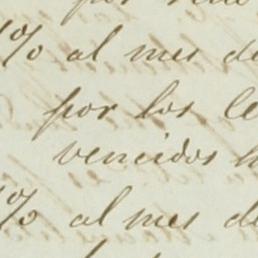 por
% al mes de
por los
vencidos
% al mes de